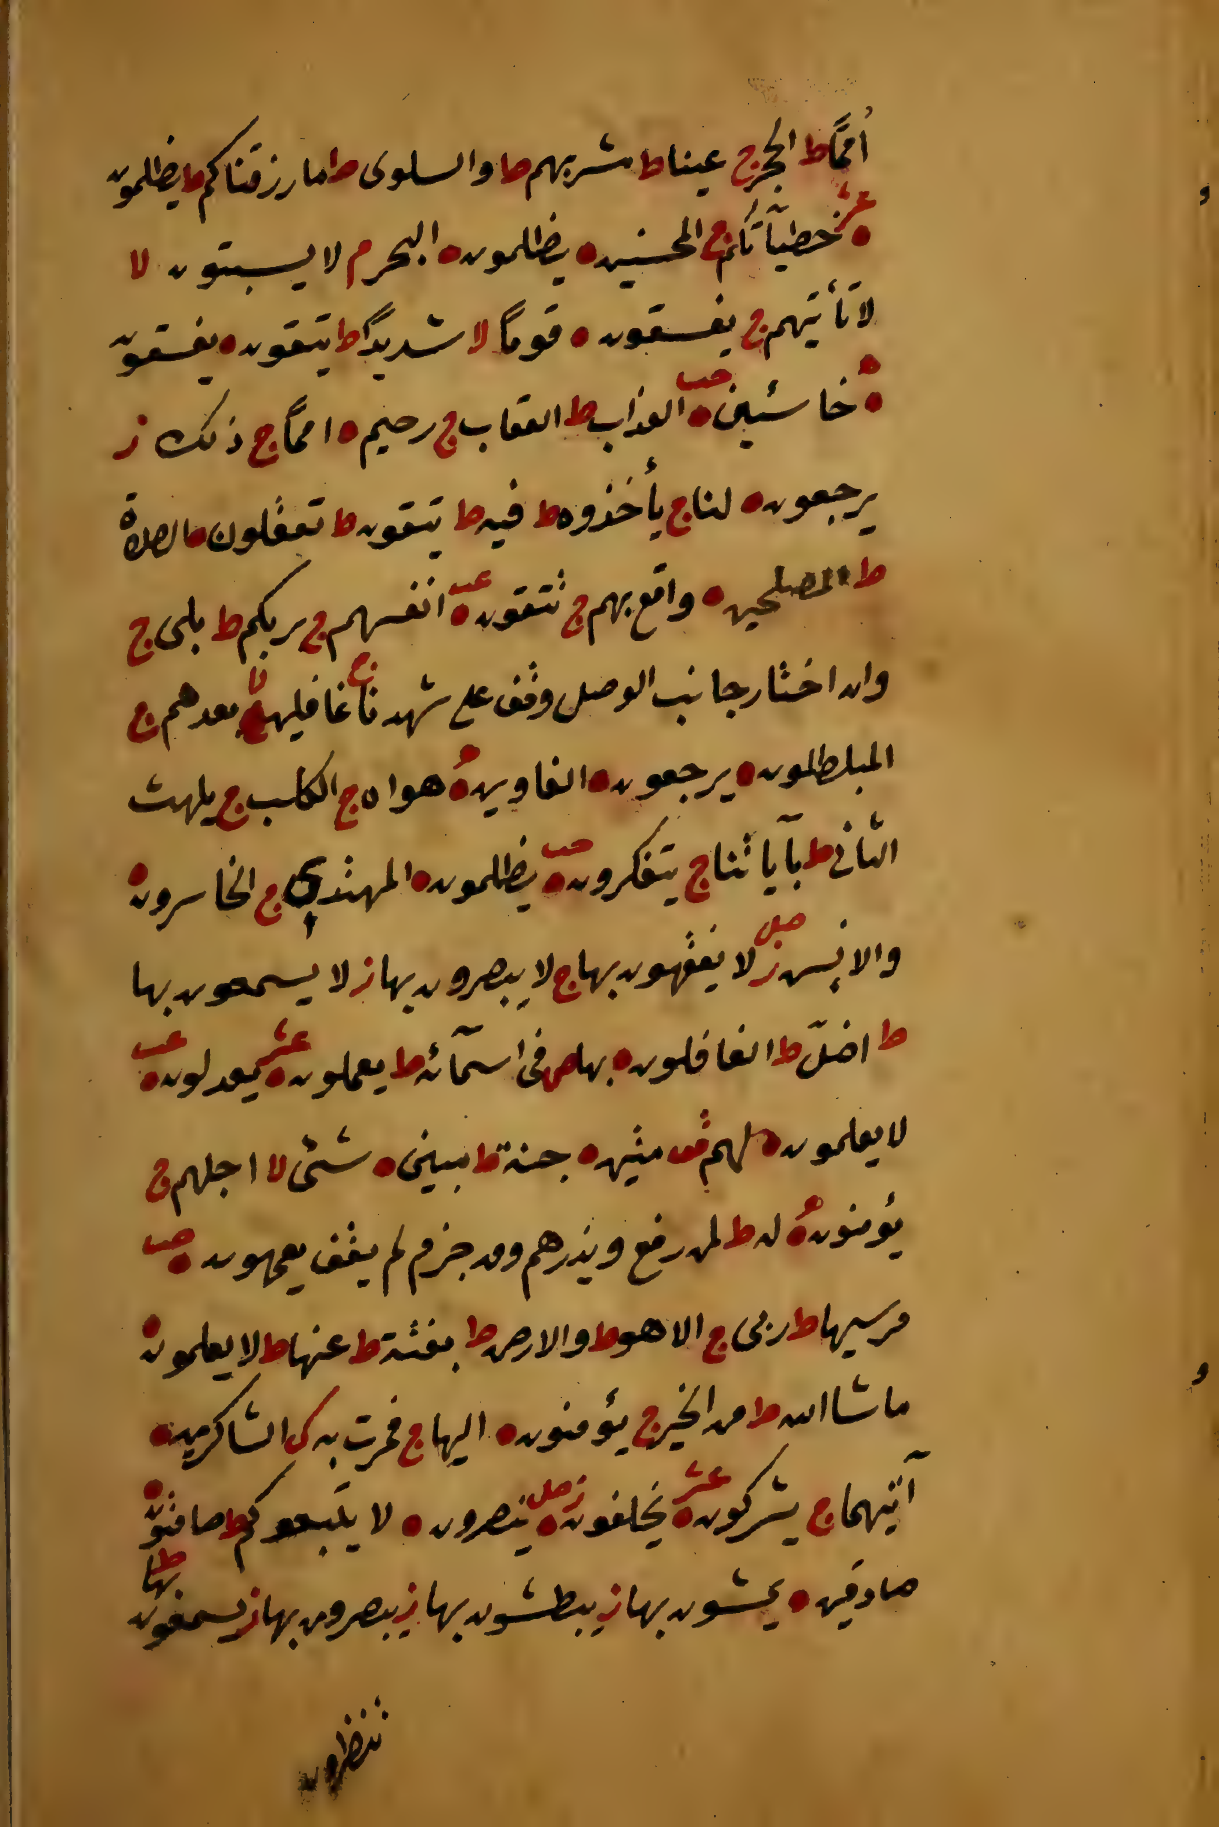 أممًا ط الحجر ج عينا ط مشربهم ط والسلوى ط ما رزقناكم ط يظلمون
عشر ه خطيآتكم ج المحسنين ه يظلمون ه البحر م لا يسبتون لا
لا تأتيهم ج يفسقون ه قومًا لا شديدًا ط يتقون ه يفسقون
ه خاسئين ه حب العذاب ط العقاب ج رحيم ه امماً ج ذلك ز
يرجعون ه لنا ج يأخذوه ط فيه ط يتقون ط تعقلون ه الصلاة
ط المصلحين ه واقع بهم ج تتقون ه عب انفسهم ج بربكم ط بلى ج
وان اختار جانب الوصل وقف على شهدنا ج غافلين لا بعدهم ج
المبطلون ه يرجعون ه الغاوين ه هواه ج الكلب ج يلهث
الثاني ط بآياتنا ج يتفكرون ه حب يظلمون ه المهتدي ج الخاسرون ه
والانس ز صل لا يفقهون بها ج لا يبصرون بها ز لا يسمعون بها
ط اضلّ ط الغافلون ه بها ص في اسمآئه ط يعملون ه عشر يعدلون ه عب
لا يعلمون ه لهم قف متين ه جنة ط مبين ه شئ لا اجلهم ج
يؤمنون ه له ط لمن رفع ويذرهم ومن جزم لم يقف يعمهون ه حب
مرسيها ط ربى ج الا هو ط والارض ط بغتة ط عنها ط لا يعلمون ه
ما شا الله ط من الخير ج يؤمنون ه اليها ج فمرت به ج الشاكرين ه
آتيهما ج يشركون ه عشر يخلقون ه ز صل ينصرون ه لا يتبعوكم ط صامتون ه
صادقين ه يمشون بها ز يبطشون بها ز يبصرون بها ز يسمعون بها ط
تنظرون